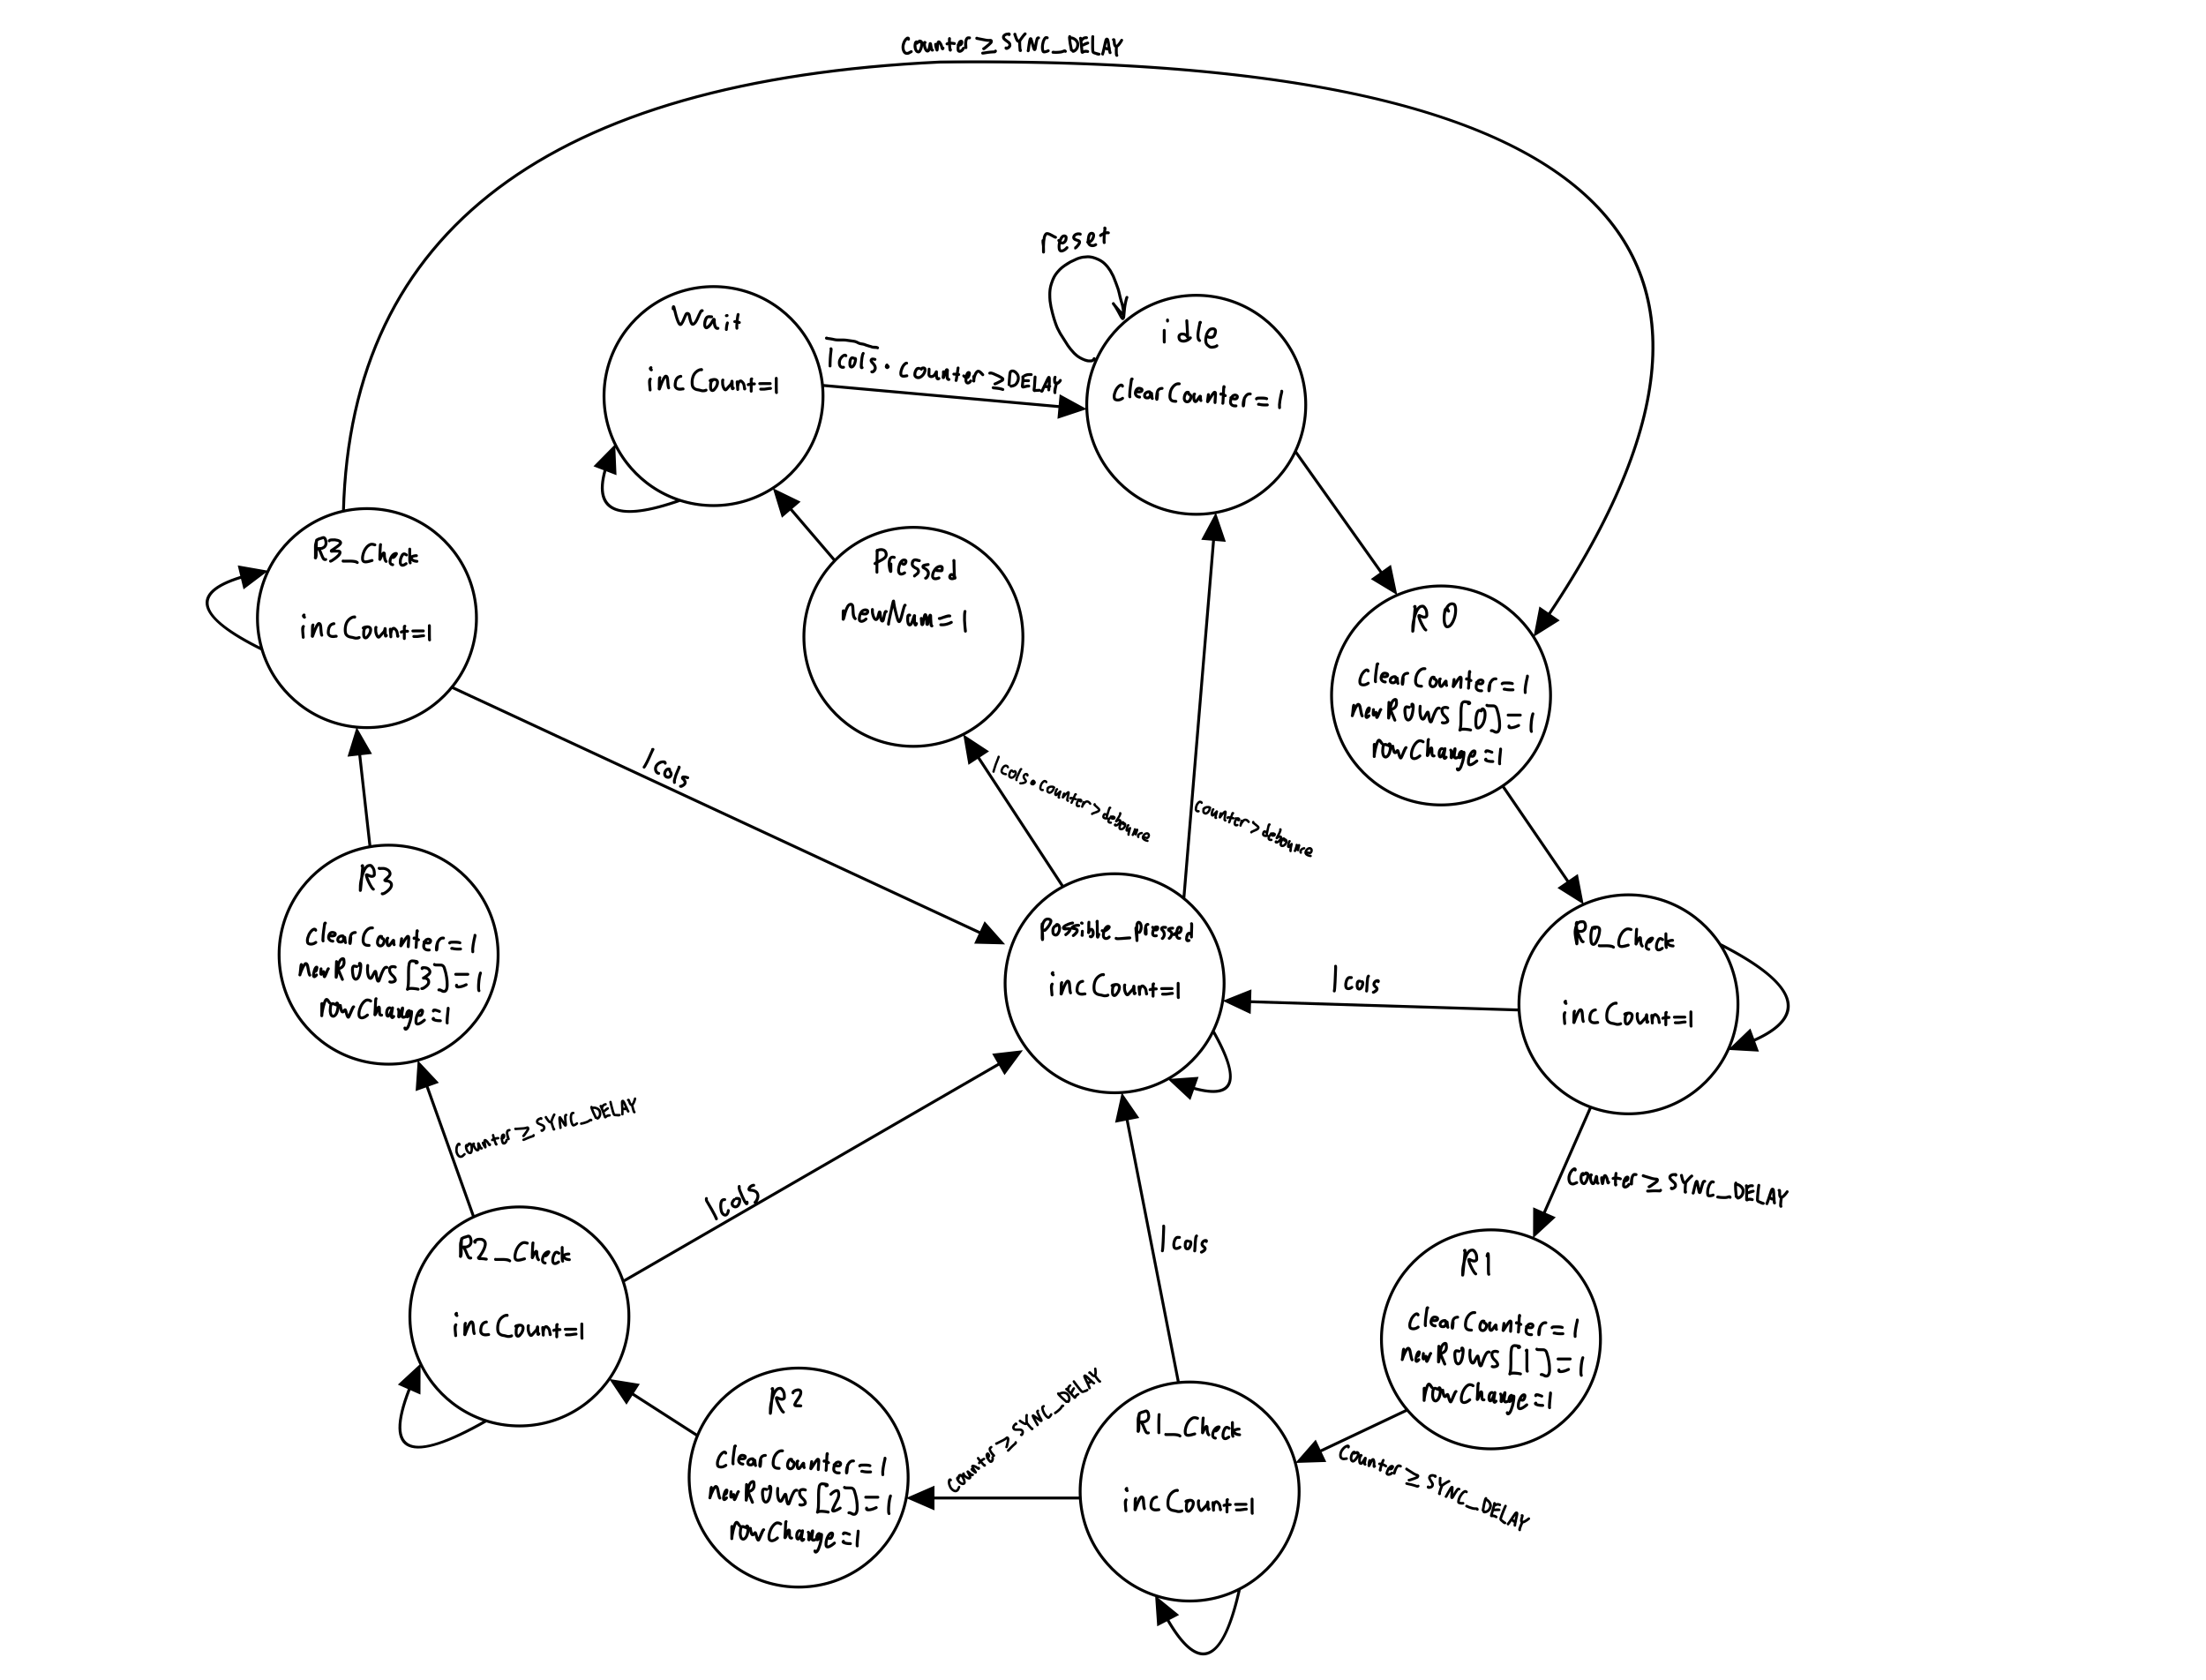 Counter ≥ SYNC_DELAY
reset
Wait
incCount=1
|cols · counter ≥ DELAY
idle
clearCounter = 1
R3_Check
incCount=1
Pressed
newNum = 1
R 0
clearCounter = 1
newRows [0] = 1
rowChange = 1
|cols
|cols • counter > debounce
counter > debounce
R3
clearCounter = 1
newRows [3] = 1
rowChange = 1
Possible_pressed
incCount=1
|cols
R0_Check
incCount=1
counter ≥ SYNC_DELAY
Counter ≥ SYNC_DELAY
|cols
|cols
R2_Check
incCount=1
R1
clearCounter = 1
newRows [1] = 1
rowChange = 1
R2
clearCounter = 1
newRows [2] = 1
rowChange = 1
counter ≥ SYNC_DELAY
R1_Check
incCount=1
counter ≥ SYNC_DELAY